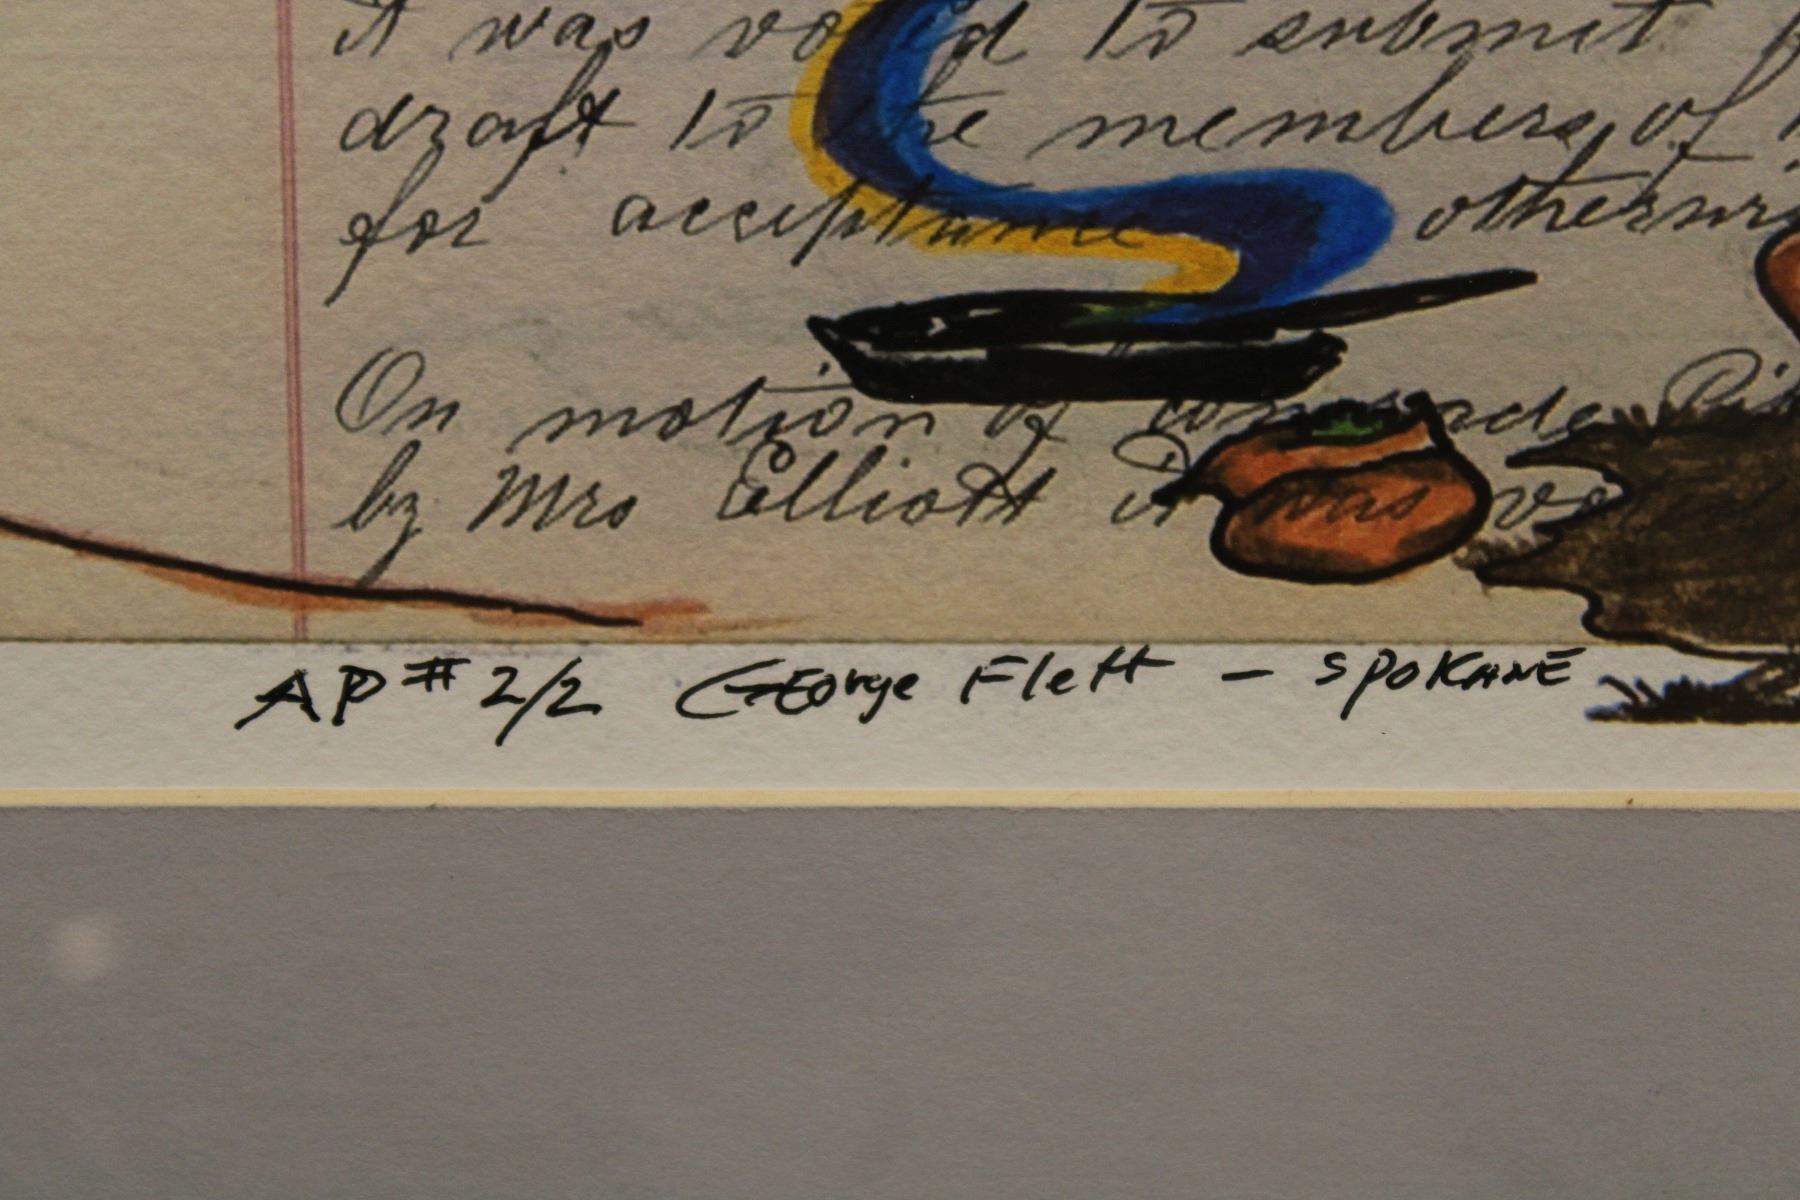 It was voted to submit
draft to the members of
for acceptance
On motion of comrade
by Mrs Elliott it was
AP # 2/2 George Flett - SPOKANE